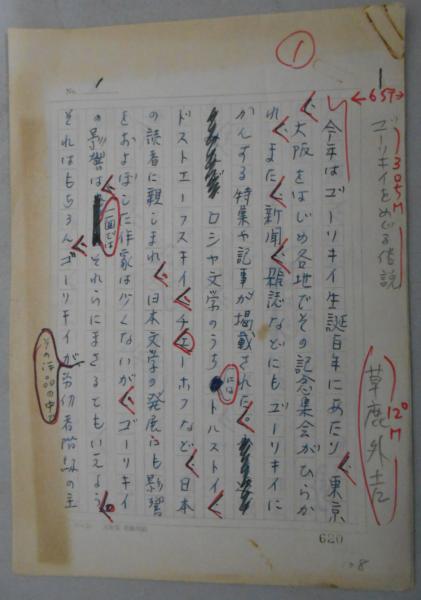 No. 1
①
1
←65字→
ゴーリキイをめぐる伝説
305M
草鹿外吉
12°M
今年はゴーリキイ生誕百年にあたり、東京
、大阪をはじめ各地でその記念集会がひらか
れ、また、新聞、雑誌などにもゴーリキイに
かんする特集や記事が掲載された。
ロシヤ文学のうちには、トルストイ、
ドストエーフスキイ、チェーホフなど、日本
の読者に親しまれ、日本文学の発展にも影響
をおよぼした作家は少くないが、ゴーリキイ
の影響は、一面ではそれらにまさるともいえよう。
それはもちろん、ゴーリキイが労働者階級の主
その作品の中で
620